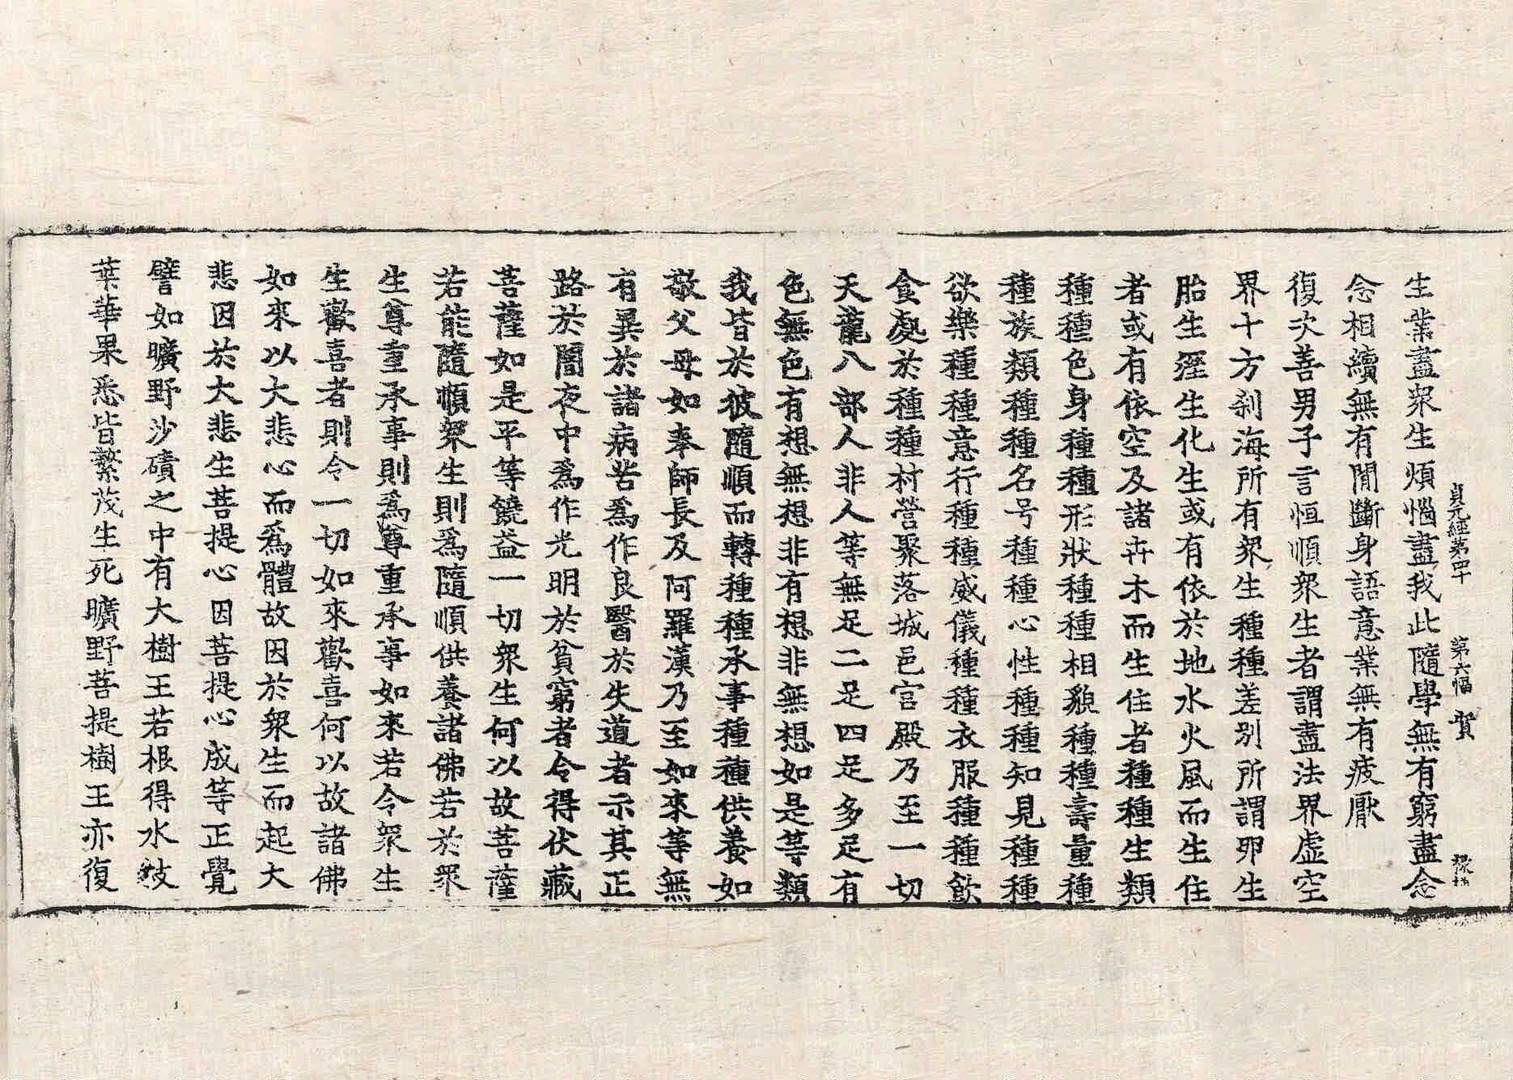 貞元經第四十 第六幅 賀
生業盡衆生煩惱盡我此隨學無有窮盡念
念相續無有閒斷身語意業無有疲厭
復次善男子言恒順衆生者謂盡法界虛空
界十方刹海所有衆生種種差别所謂卵生
胎生溼生化生或有依於地水火風而生住
者或有依空及諸卉木而生住者種種生類
種種色身種種形狀種種相貌種種壽量種
種族類種種名号種種心性種種知見種種
欲樂種種意行種種威儀種種衣服種種飮
食處於種種村營聚落城邑宫殿乃至一切
天龍八部人非人等無足二足四足多足有
色無色有想無想非有想非無想如是等類
我皆於彼隨順而轉種種承事種種供養如
敬父母如奉師長及阿羅漢乃至如來等無
有異於諸病苦爲作良醫於失道者示其正
路於闇夜中爲作光明於貧窮者令得伏藏
菩薩如是平等饒益一切衆生何以故菩薩
若能隨順衆生則爲隨順供養諸佛若於衆
生尊重承事則爲尊重承事如來若令衆生
生歡喜者則令一切如來歡喜何以故諸佛
如來以大悲心而爲體故因於衆生而起大
悲因於大悲生菩提心因菩提心成等正覺
譬如曠野沙磧之中有大樹王若根得水枝
葉華果悉皆繁茂生死曠野菩提樹王亦復